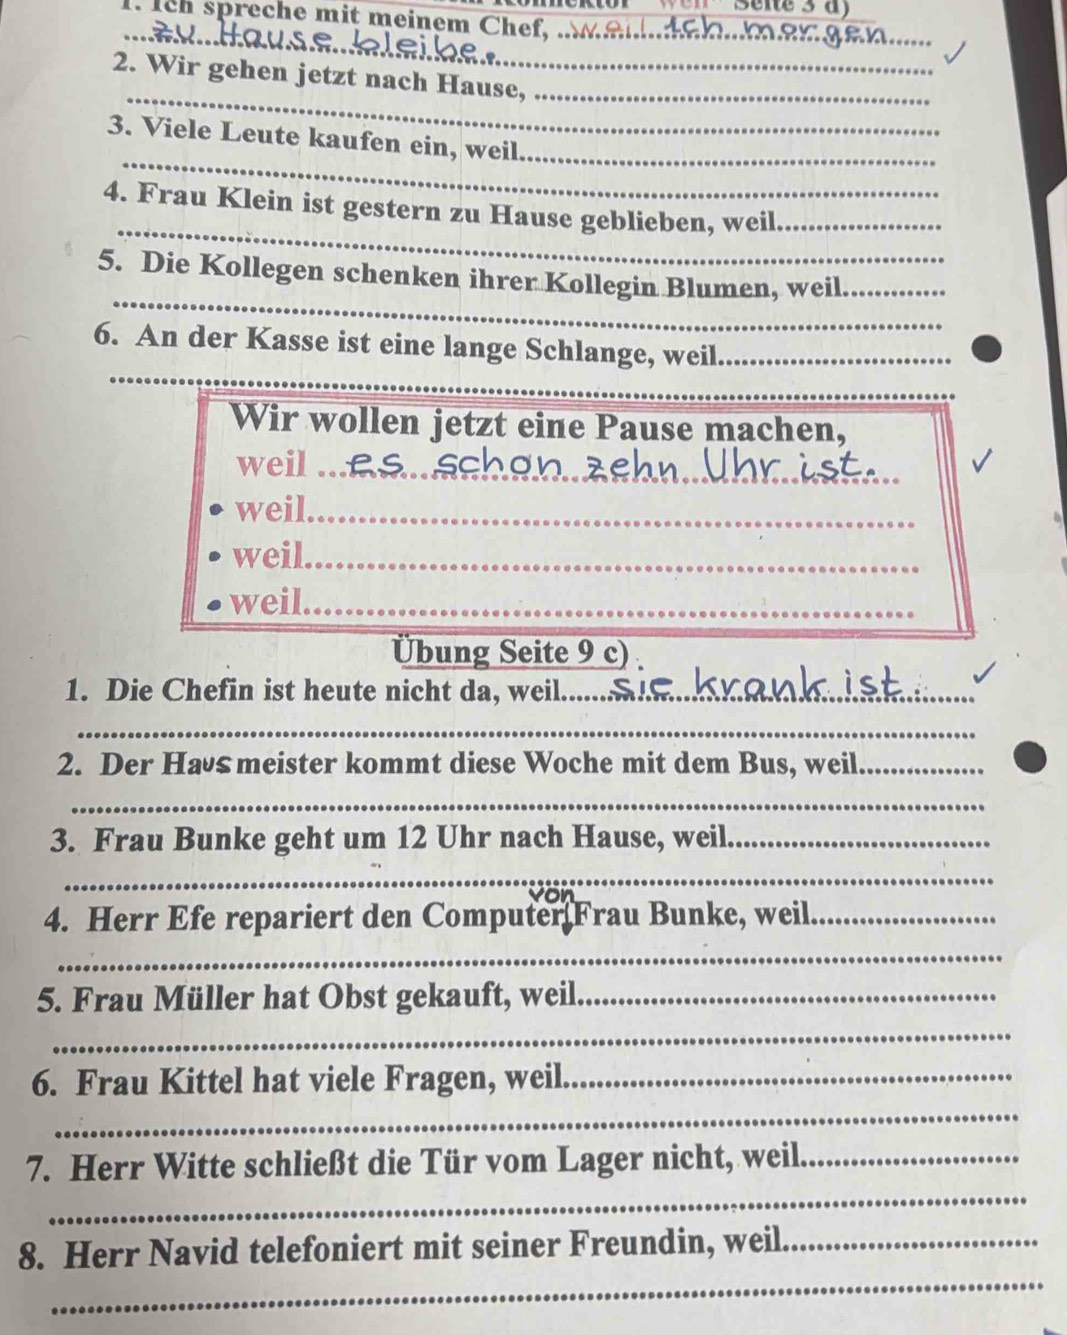 1. Ich spreche mit meinem Chef, ...weil ich morgen......
....zu Hause bleibe..........
2. Wir gehen jetzt nach Hause, ..........
..........
3. Viele Leute kaufen ein, weil..........
..........
4. Frau Klein ist gestern zu Hause geblieben, weil..........
..........
5. Die Kollegen schenken ihrer Kollegin Blumen, weil..........
..........
6. An der Kasse ist eine lange Schlange, weil..........
..........
Wir wollen jetzt eine Pause machen,
weil ...es schon zehn Uhr ist.
• weil..........
• weil..........
• weil..........
Übung Seite 9 c)
1. Die Chefin ist heute nicht da, weil......sie krank ist.......
..........
2. Der Hausmeister kommt diese Woche mit dem Bus, weil..........
..........
3. Frau Bunke geht um 12 Uhr nach Hause, weil..........
..........
von
4. Herr Efe repariert den Computer Frau Bunke, weil..........
..........
5. Frau Müller hat Obst gekauft, weil..........
..........
6. Frau Kittel hat viele Fragen, weil..........
..........
7. Herr Witte schließt die Tür vom Lager nicht, weil..........
..........
8. Herr Navid telefoniert mit seiner Freundin, weil..........
..........